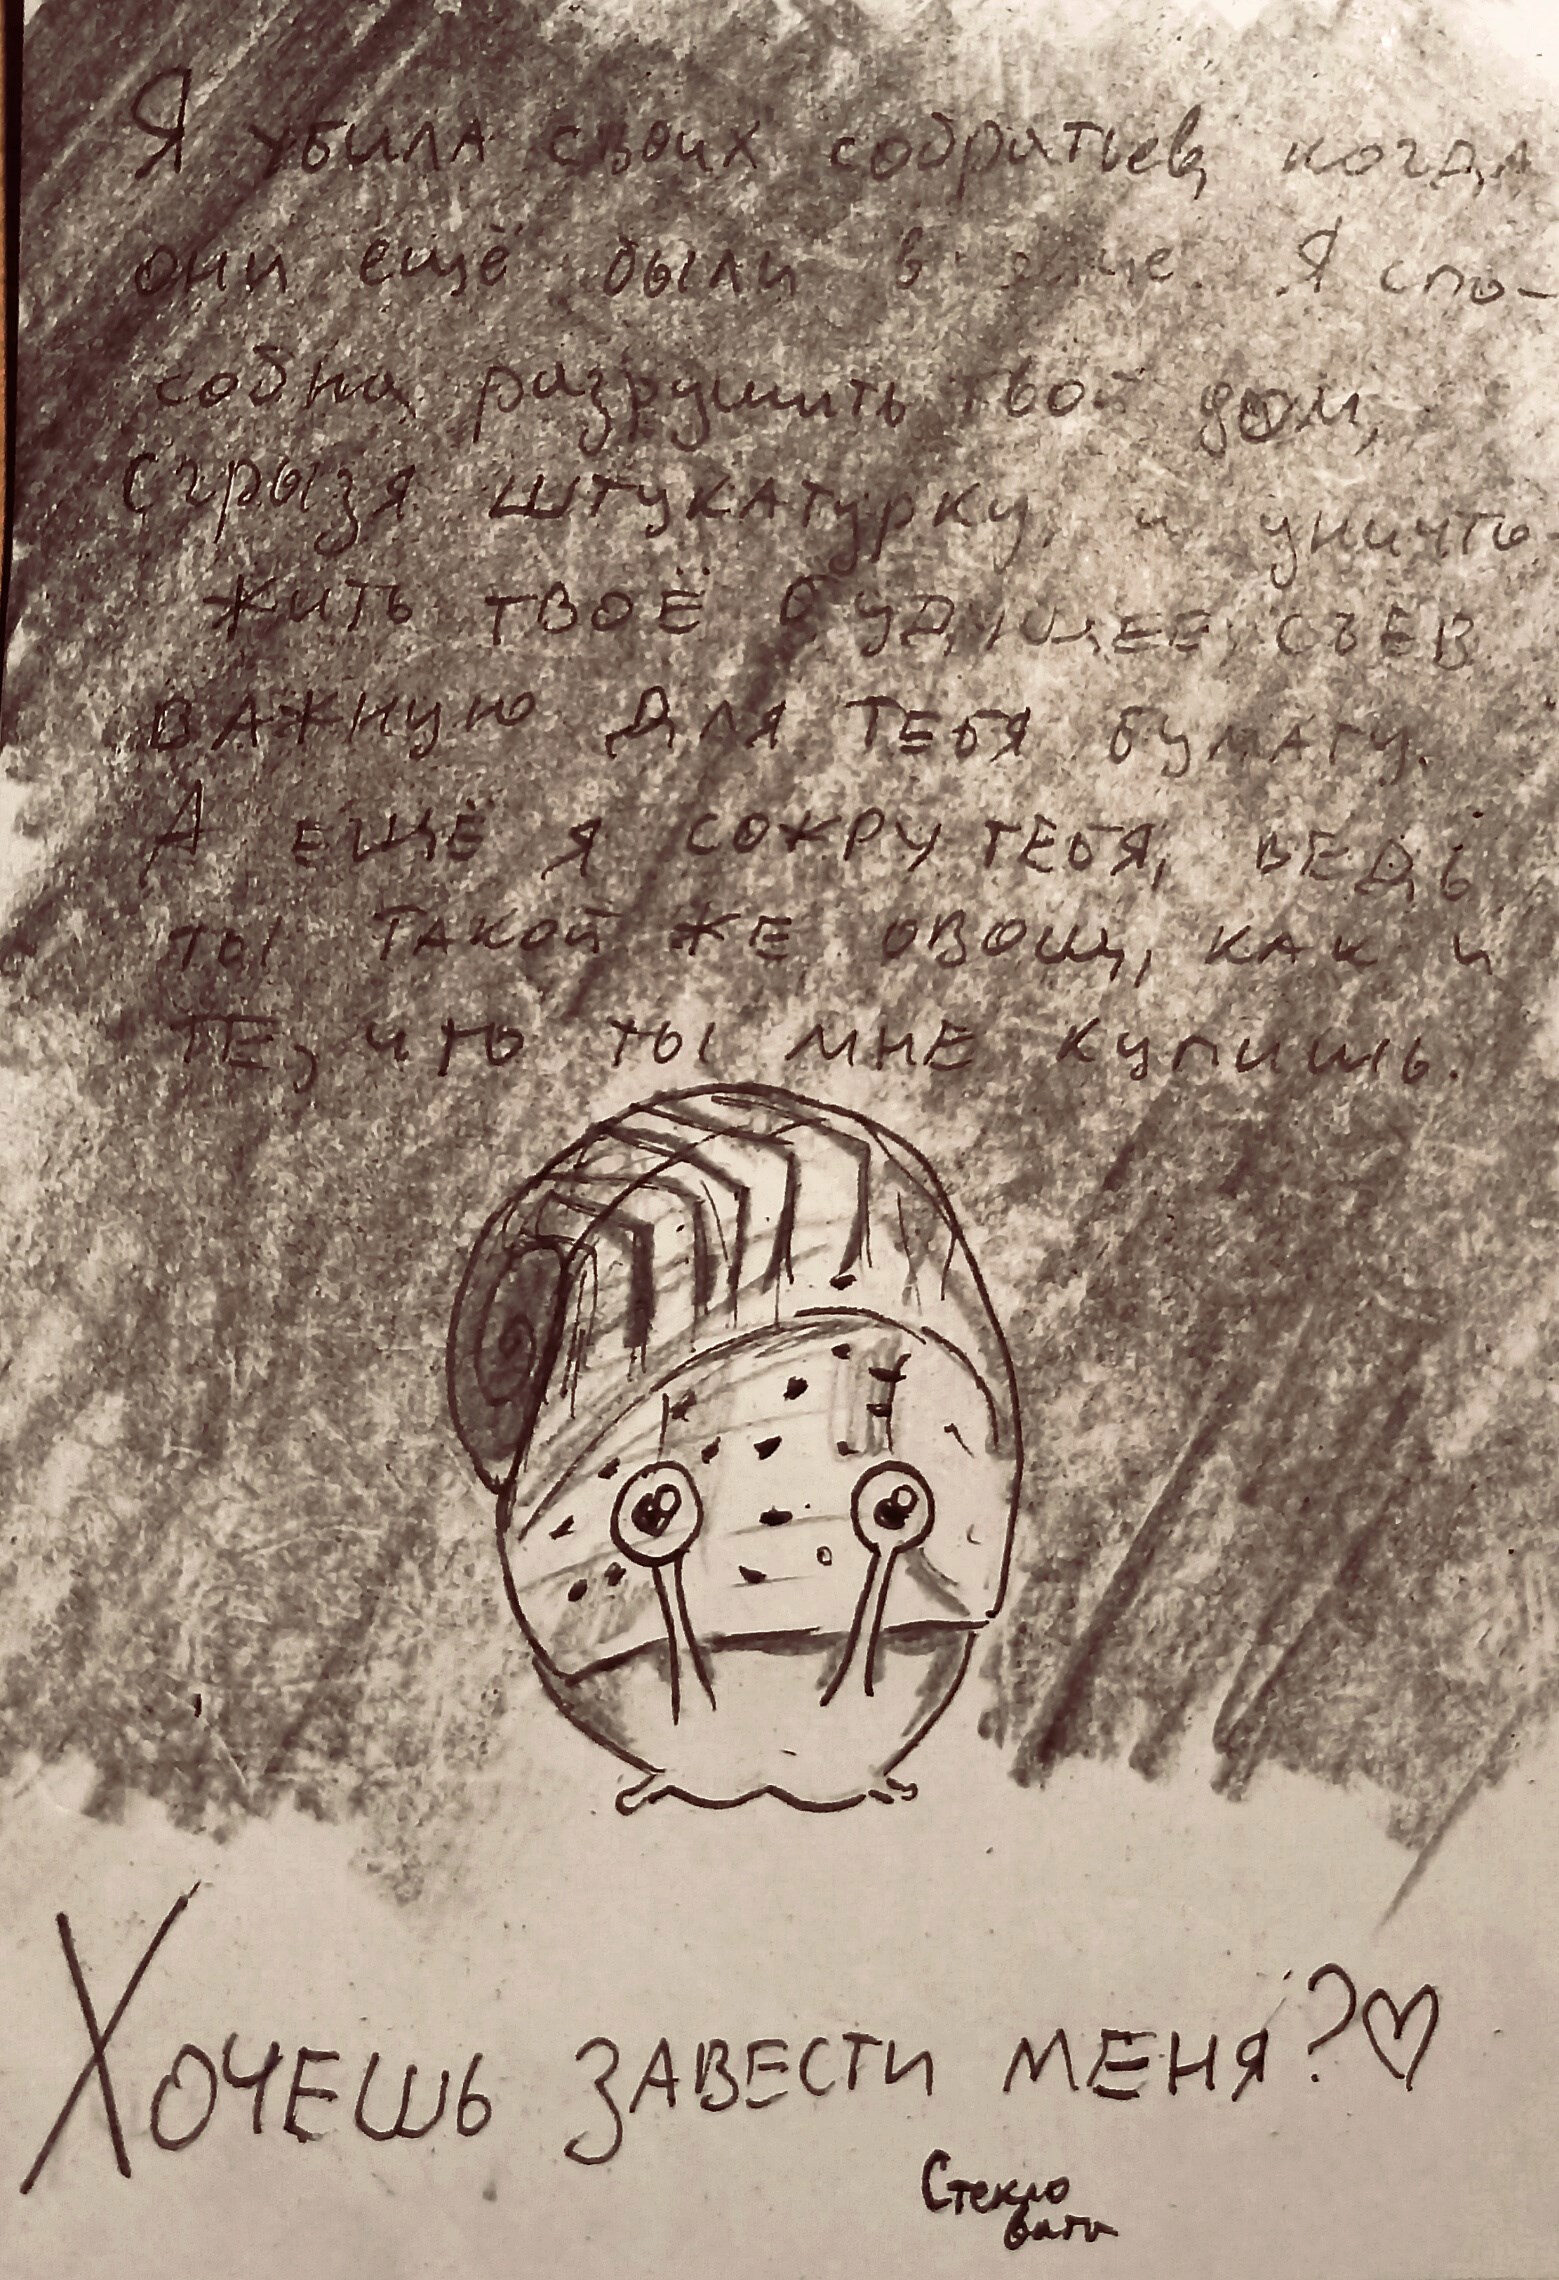 Я убила своих собратьев, когда
они ещё были в яйце. Я спо-
собна разрушить твой дом,
сгрызя штукатурку, и уничто-
жить твоё будущее, съев
важную для тебя бумагу.
А ещё я сожру тебя, ведь
ты такой же овощ, как и
те, что ты мне купишь.
Хочешь завести меня?♡
Стекло
вата